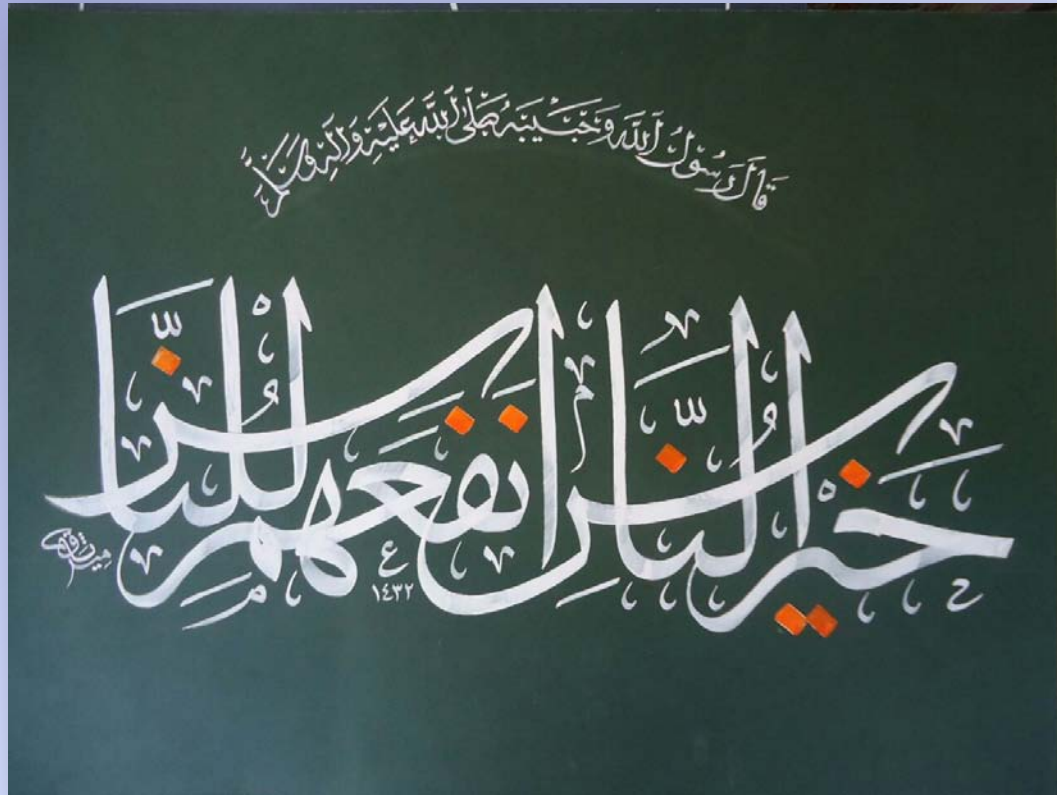 قَالَ رَسُوْلُ اللّٰه وَحَبِيْبَهُ صَلَّى اللّٰه عَلَيْهِ وَالِهِ وَسَلَّمَ
خَيرُ النَّاسِ انفَعُهُم لِلنَّاسِ
١٤٣٢